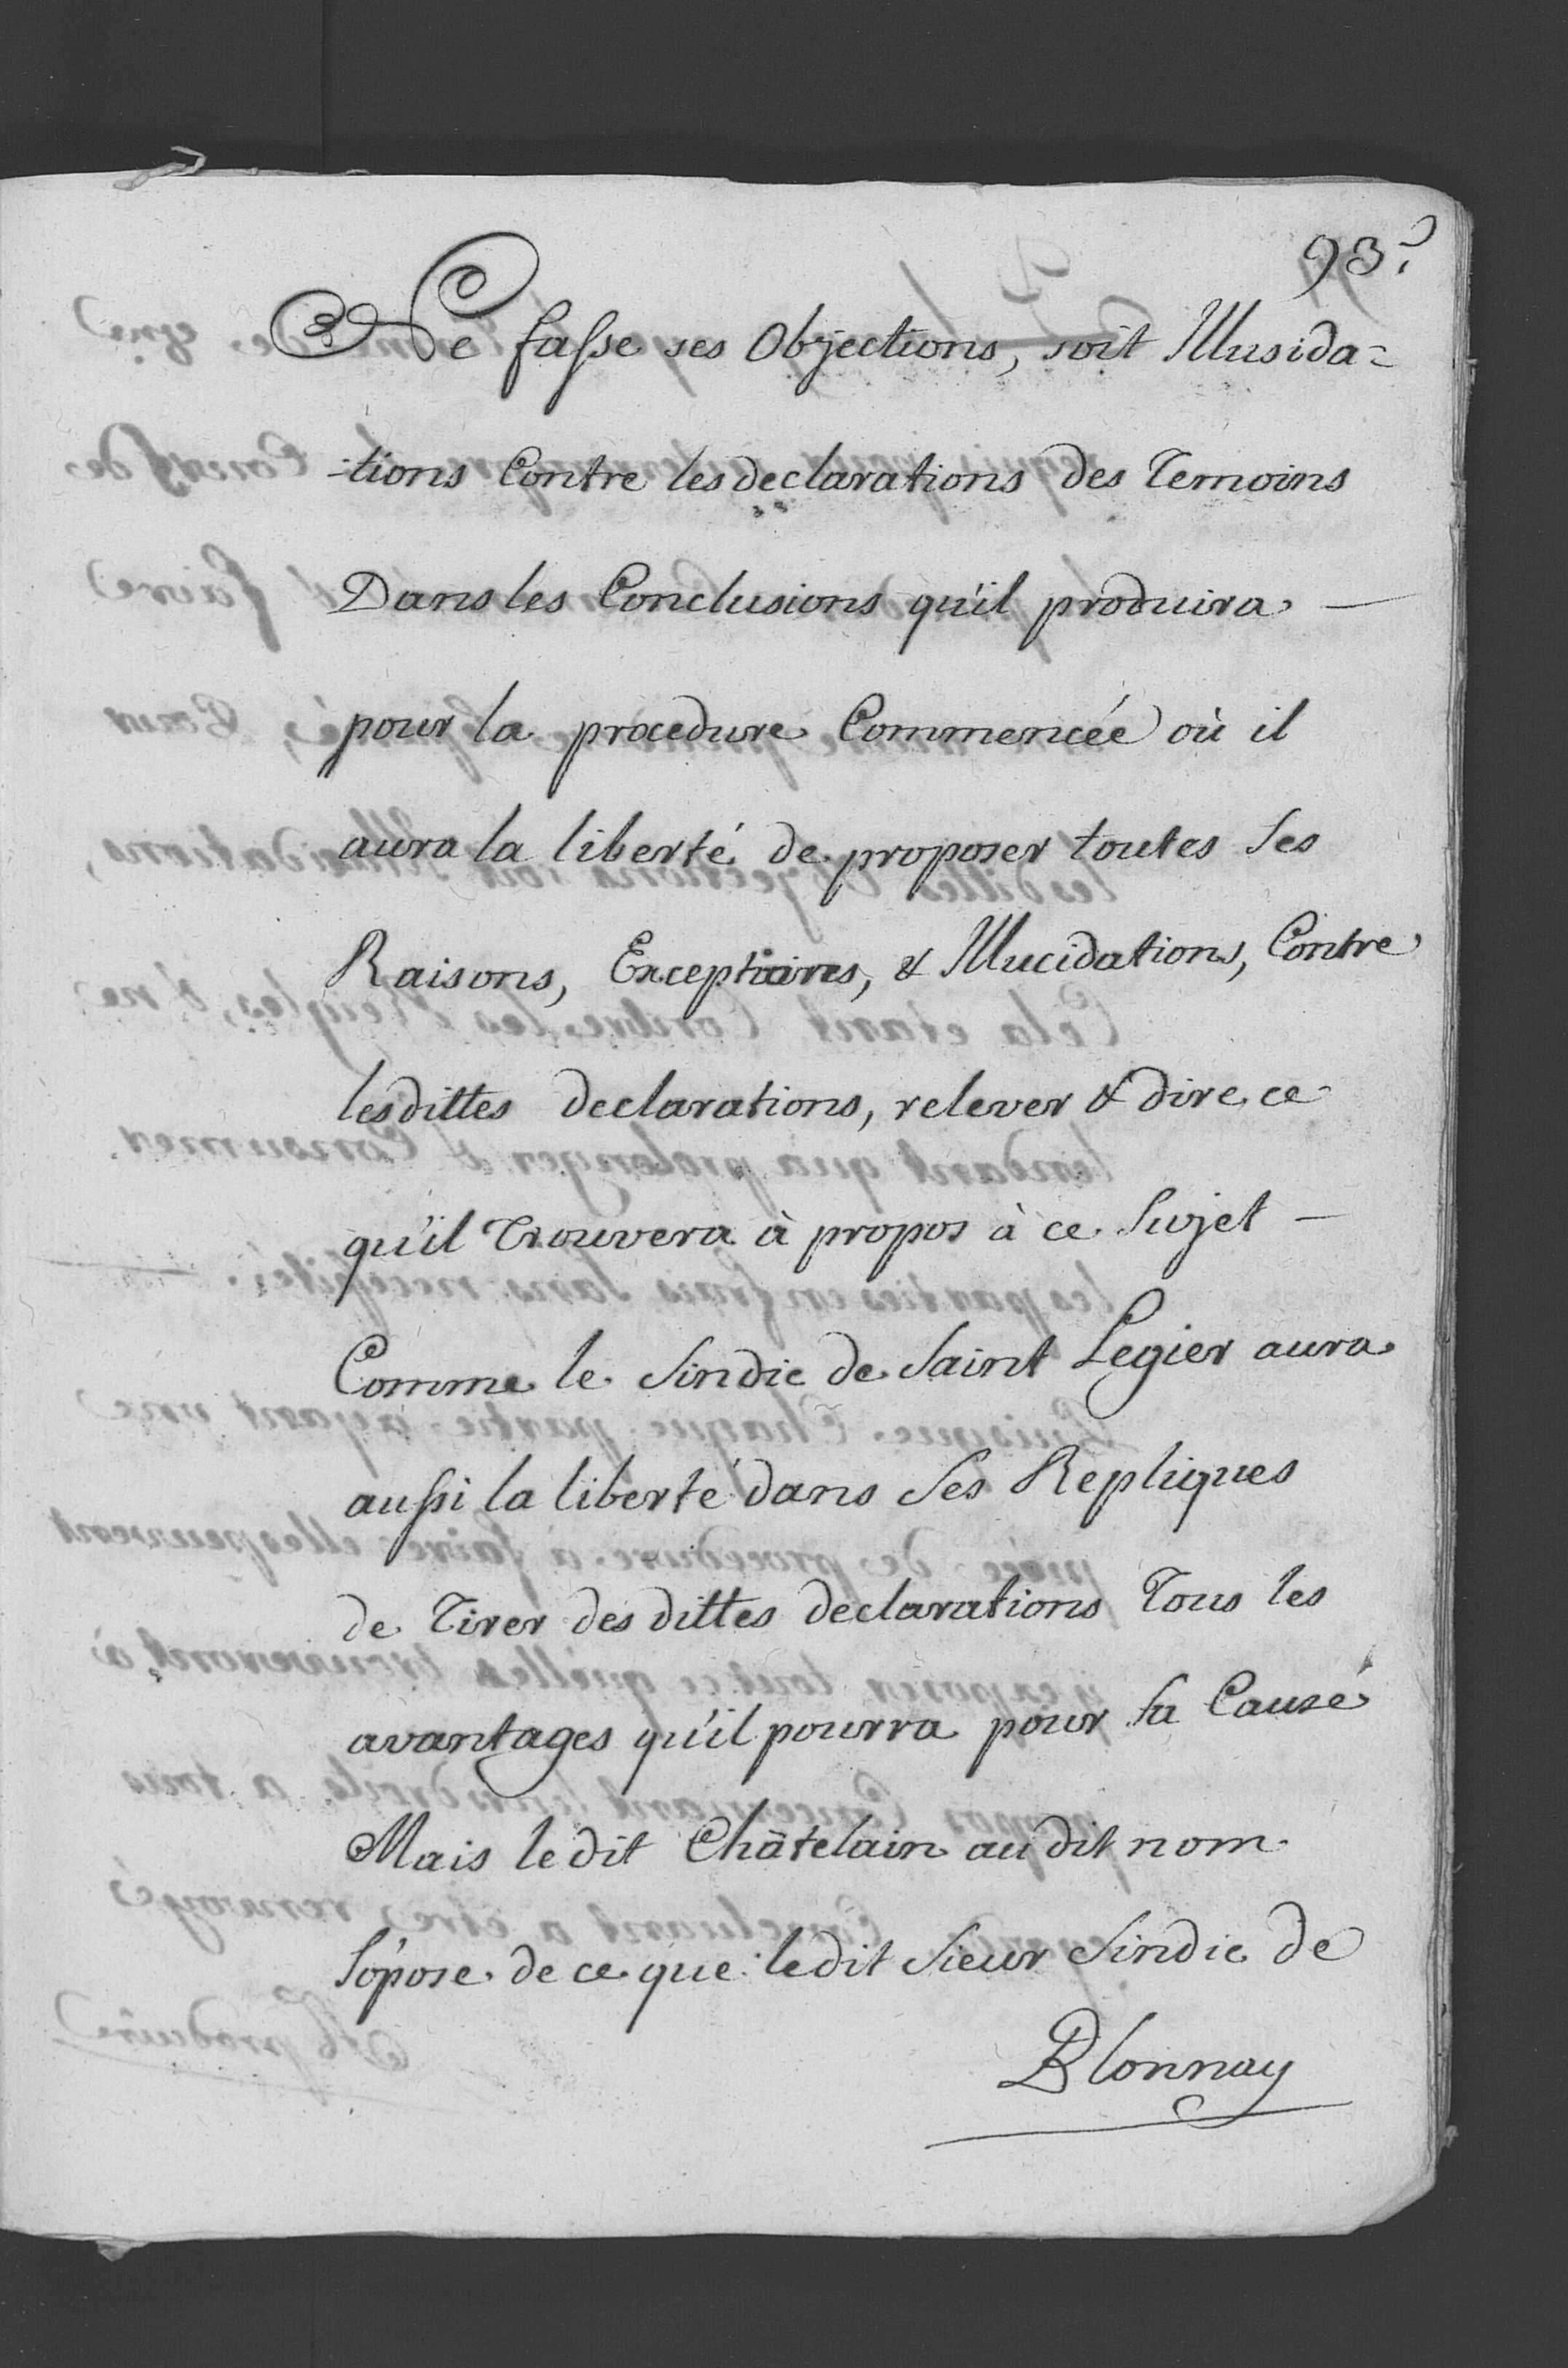 93.
Ne fasse ses Objections, soit Illusida=
-tions Contre les declarations des Temoins
Dans les Conclusions qu'il produira —
pour la procedure Commencée où il
aura la liberté de proposer toutes ses
Raisons, Exceptions, & Illucidations, Contre
lesdittes declarations, relever & dire ce
qu'il Trouvera à propos à ce Sujet —
Comme le Sindic de Saint Legier aura
aussi la liberté dans ses Repliques
de Tirer des dittes declarations Tous les
avantages qu'il pourra pour sa Cause
Mais ledit Châtelain audit nom
S'opose de ce que ledit Sieur Sindic de
Blonnay